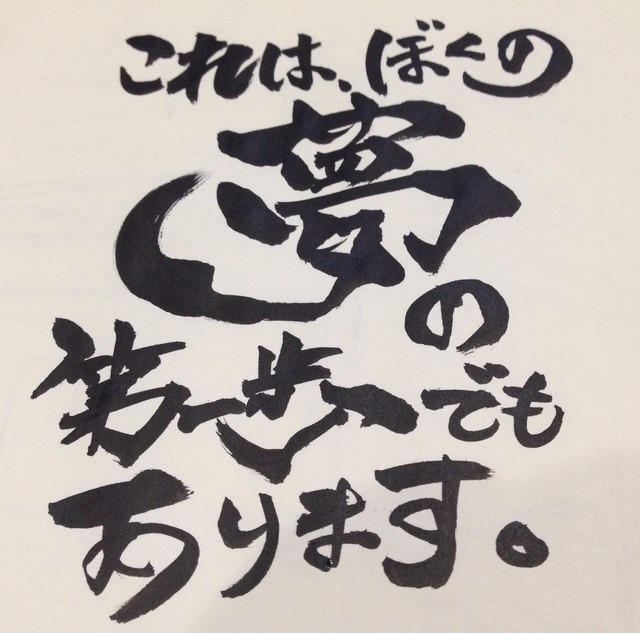 これは、ぼくの
夢の
第一歩でも
あります。